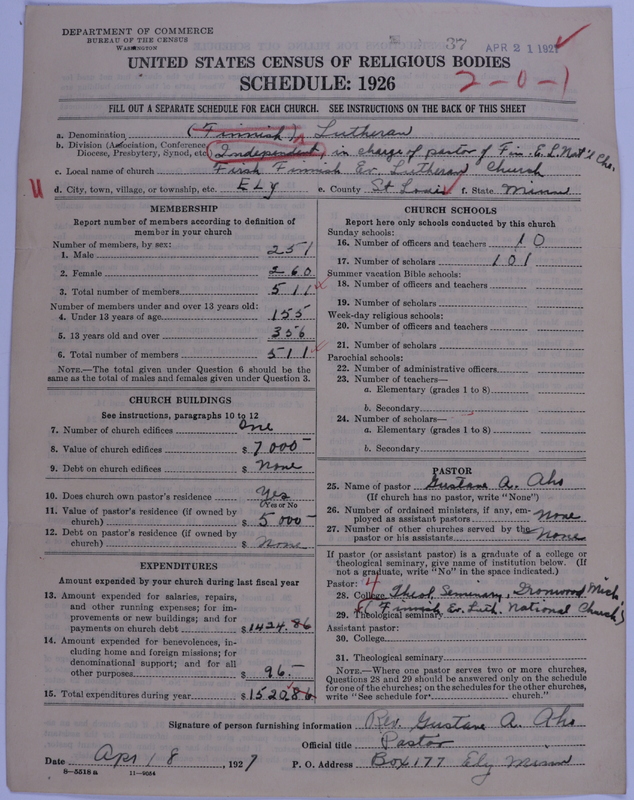 DEPARTMENT OF COMMERCE
BUREAU OF THE CENSUS
WASHINGTON
37
APR 21 1927
UNITED STATES CENSUS OF RELIGIOUS BODIES
SCHEDULE: 1926
2-0-1
FILL OUT A SEPARATE SCHEDULE FOR EACH CHURCH. SEE INSTRUCTIONS ON THE BACK OF THIS SHEET
a. Denomination (Finnish) Lutheran
b. Division (Association, Conference, Diocese, Presbytery, Synod, etc.) (Independent) in charge of pastor of Fin. E. L. Nat'l Ch.
c. Local name of church First Finnish Ev. Lutheran Church
d. City, town, village, or township, etc. ELy e. County St Louis f. State Minn
MEMBERSHIP
Report number of members according to definition of
member in your church
Number of members, by sex:
1. Male 251
2. Female 260
3. Total number of members 511
Number of members under and over 13 years old:
4. Under 13 years of age 155
5. 13 years old and over 356
6. Total number of members 511
NOTE.—The total given under Question 6 should be the
same as the total of males and females given under Question 3.
CHURCH BUILDINGS
See instructions, paragraphs 10 to 12
7. Number of church edifices One
8. Value of church edifices $ 7000-
9. Debt on church edifices $ None
10. Does church own pastor's residence Yes
(Yes or No)
11. Value of pastor's residence (if owned by
church) $ 5000-
12. Debt on pastor's residence (if owned by
church) $ None
EXPENDITURES
Amount expended by your church during last fiscal year
13. Amount expended for salaries, repairs,
and other running expenses; for im-
provements or new buildings; and for
payments on church debt $ 1424.86
14. Amount expended for benevolences, in-
cluding home and foreign missions; for
denominational support; and for all
other purposes $ 96.-
15. Total expenditures during year $ 1520.86
CHURCH SCHOOLS
Report here only schools conducted by this church
Sunday schools:
16. Number of officers and teachers 10
17. Number of scholars 101
Summer vacation Bible schools:
18. Number of officers and teachers
19. Number of scholars
Week-day religious schools:
20. Number of officers and teachers
21. Number of scholars
Parochial schools:
22. Number of administrative officers
23. Number of teachers—
a. Elementary (grades 1 to 8)
b. Secondary
24. Number of scholars—
a. Elementary (grades 1 to 8)
b. Secondary
PASTOR
25. Name of pastor Gustave A. Aho
(If church has no pastor, write "None")
26. Number of ordained ministers, if any, em-
ployed as assistant pastors None
27. Number of other churches served by the
pastor or his assistants None
If pastor (or assistant pastor) is a graduate of a college or
theological seminary, give name of institution below. (If
not a graduate, write "No" in the space indicated.)
Pastor: 4
28. College Theol. Seminary, Ironwood Mich
29. Theological seminary (Finnish Ev. Luth. National Church)
Assistant pastor:
30. College
31. Theological seminary
NOTE.—Where one pastor serves two or more churches,
Questions 28 and 29 should be answered only on the schedule
for one of the churches; on the schedules for the other churches,
write "See schedule for church."
Signature of person furnishing information Rev. Gustave A. Aho
Official title Pastor
Date Apr 18, 1927 P. O. Address Box 177 Ely Minn
8-5518a 11-9054